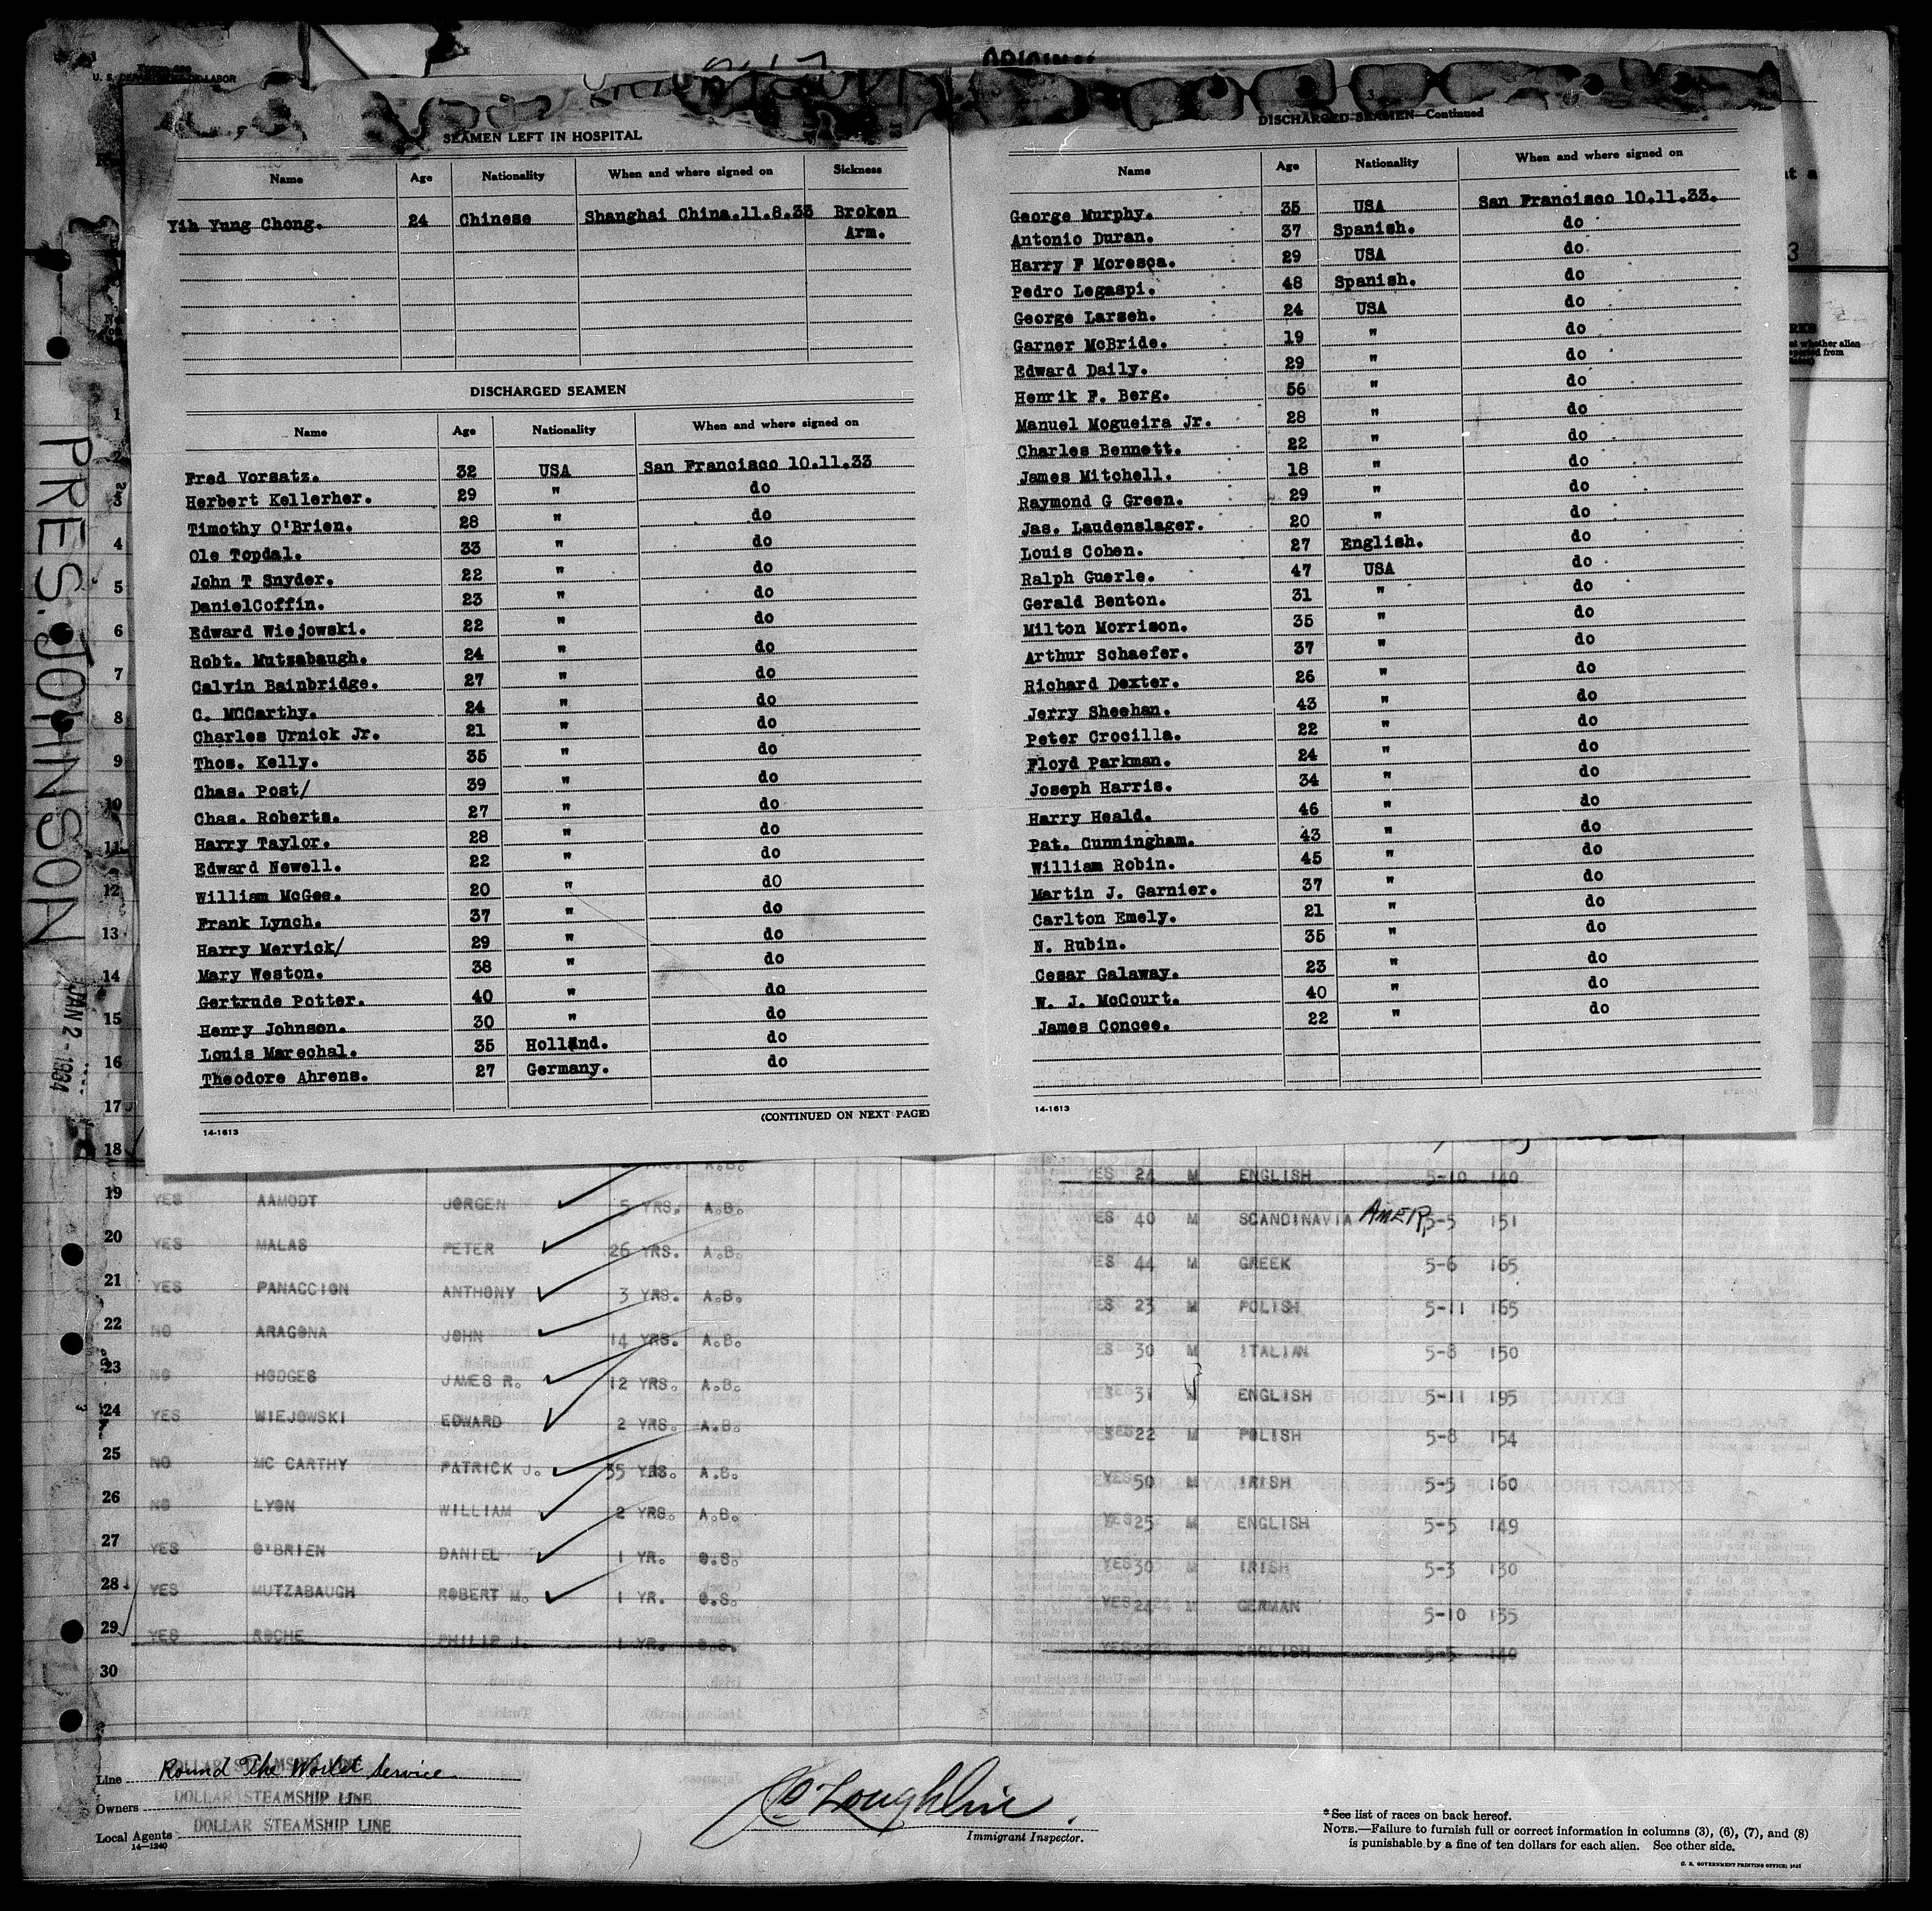 U. S. DEPARTMENT OF LABOR
SEAMEN LEFT IN HOSPITAL
Name Age Nationality When and where signed on Sickness
Yih Yung Chong. 24 Chinese Shanghai China.11.8.33 Broken
Arm.
DISCHARGED SEAMEN
Name Age Nationality When and where signed on
Fred Vorsatz. 32 USA San Francisco 10.11.33
Herbert Kellerher. 29 " do
Timothy O'Brien. 28 " do
Ole Topdal. 33 " do
John T Snyder. 22 " do
DanielCoffin. 23 " do
Edward Wiejowski. 22 " do
Robt. Mutzabaugh. 24 " do
Calvin Bainbridge. 27 " do
C. MCCarthy. 24 " do
Charles Urnick Jr. 21 " do
Thos. Kelly. 35 " do
Chas. Post/ 39 " do
Chas. Roberts. 27 " do
Harry Taylor. 28 " do
Edward Newell. 22 " do
William McGee. 20 " dO
Frank Lynch. 37 " do
Harry Mervick/ 29 " do
Mary Weston. 38 " do
Gertrude Potter. 40 " do
Henry Johnson. 30 " do
Louis Marechal. 35 Holland. do
Theodore Ahrens. 27 Germany. do
(CONTINUED ON NEXT PAGE)
14-1613
DISCHARGED SEAMEN—Continued
Name Age Nationality When and where signed on
George Murphy. 35 USA San Francisco 10.11.33.
Antonio Duran. 37 Spanish. do
Harry F Moresca. 29 USA do
Pedro Legaspi. 48 Spanish. do
George Larseh. 24 USA do
Garner McBride. 19 " do
Edward Daily. 29 " do
Henrik F. Berg. 56 " do
Manuel Mogueira Jr. 28 " do
Charles Bennett. 22 " do
James Mitchell. 18 " do
Raymond G Green. 29 " do
Jas. Laudenslager. 20 " do
Louis Cohen. 27 English. do
Ralph Guerle. 47 USA do
Gerald Benton. 31 " do
Milton Morrison. 35 " do
Arthur Schaefer. 37 " do
Richard Dexter. 26 " do
Jerry Sheehan. 43 " do
Peter Crocilla. 22 " do
Floyd Parkman. 24 " do
Joseph Harris. 34 " do
Harry Heald. 46 " do
Pat. Cunningham. 43 " do
William Robin. 45 " do
Martin J. Garnier. 37 " do
Carlton Emely. 21 " do
N. Rubin. 35 " do
Cesar Galaway. 23 " do
W. J. McCourt. 40 " do
James Concee. 22 " do
14-1613
PRES. JOHNSON
JAN 2 - 1934
1
2
3
4
5
6
7
8
9
10
11
12
13
14
15
16
17
18 A.B. YES 24 M ENGLISH 5-10 140
19 YES AAMODT JORGEN 5 YRS. A.B. YES 40 M SCANDINAVIA AMER. 5-5 151
20 YES MALAS PETER 26 YRS. A.B. YES 44 M GREEK 5-6 165
21 YES PANACCION ANTHONY 3 YRS. A.B. YES 23 M POLISH 5-11 165
22 NO ARAGONA JOHN 14 YRS. A.B. YES 30 M ITALIAN 5-8 150
23 NO HODGES JAMES R. 12 YRS. A.B. YES 31 M ENGLISH 5-11 195
24 YES WIEJOWSKI EDWARD 2 YRS. A.B. YES 22 M POLISH 5-8 154
25 NO MC CARTHY PATRICK J. 35 YRS. A.B. YES 50 M IRISH 5-5 160
26 NO LYON WILLIAM 2 YRS. A.B. YES 25 M ENGLISH 5-5 149
27 YES O'BRIEN DANIEL 1 YR. O.S. YES 30 M IRISH 5-3 130
28 YES MUTZABAUGH ROBERT M. 1 YR. O.S. YES 24 M GERMAN 5-10 135
29 YES ROCHE PHILIP J. 1 YR. O.S. YES M ENGLISH 5-5 140
30
Line Round The World Service
DOLLAR STEAMSHIP LINE
Owners DOLLAR STEAMSHIP LINE
Local Agents DOLLAR STEAMSHIP LINE
14—1240
Immigrant Inspector.
*See list of races on back hereof.
NOTE.—Failure to furnish full or correct information in columns (3), (6), (7), and (8)
is punishable by a fine of ten dollars for each alien. See other side.